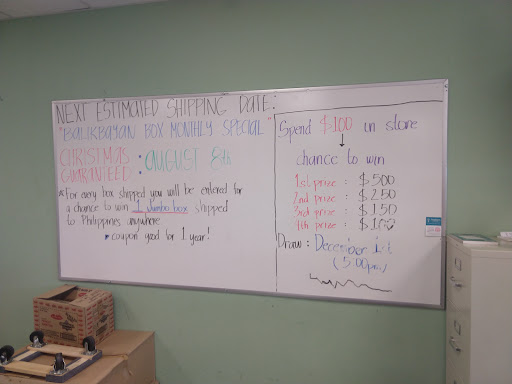 NEXT ESTIMATED SHIPPING DATE:
"BALIKBAYAN BOX MONTHLY SPECIAL"
CHRISTMAS
GUARANTEED : AUGUST 8th
* For every box shipped you will be entered for
a chance to win 1 Jumbo box shipped
to Philippines anywhere
* coupon good for 1 year!
Spend $100 in store
chance to win
1st prize : $500
2nd prize : $250
3rd prize : $150
4th prize : $100
Draw : December
(5:00pm)